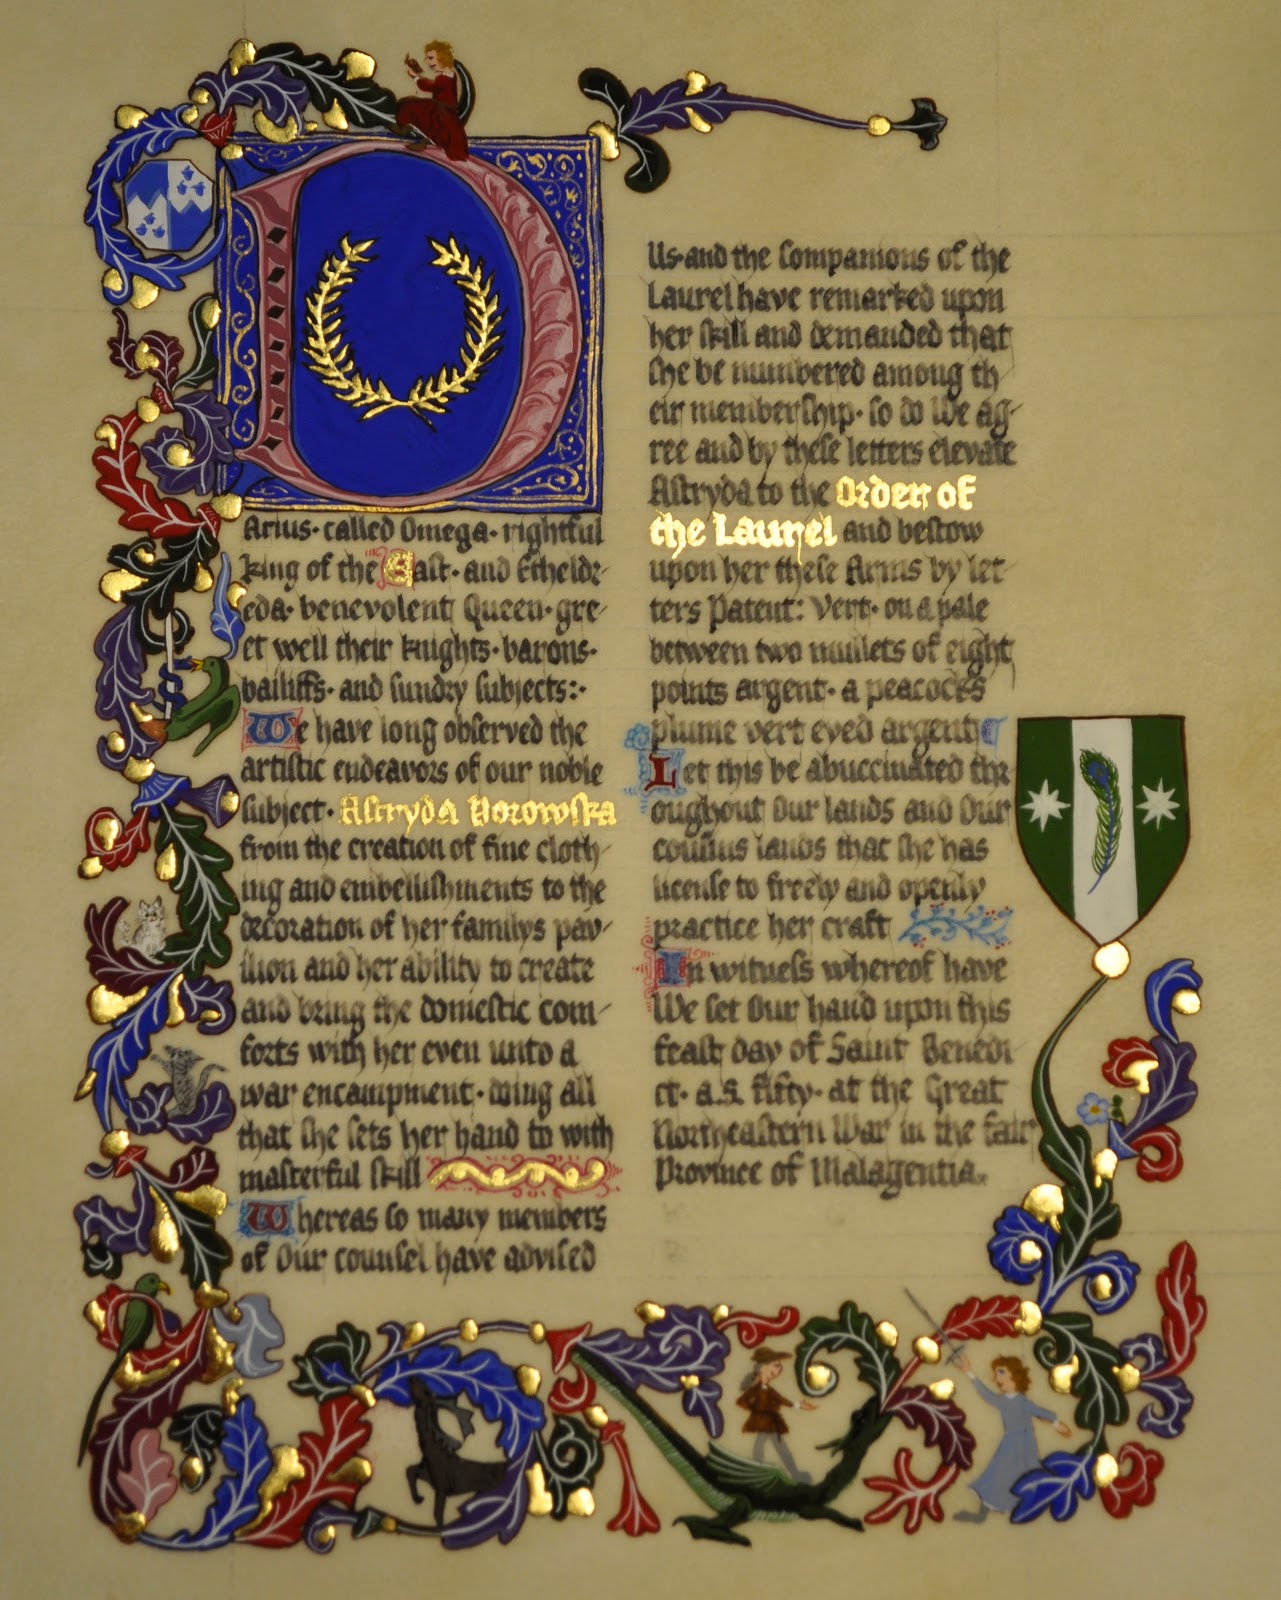 D
Arius · called Omega · rightful
King of the East · and Etheldr-
eda · benevolent Queen · gre-
et well their knights · barons ·
bailiffs · and sundry subjects:·
We have long observed the
artistic endeavors of our noble
subject · Astryda Borowska
from the creation of fine cloth-
ing and embellishments to the
decoration of her familys pav-
ilion and her ability to create
and bring the domestic com-
forts with her even unto a
war encampment · doing all
that she sets her hand to with
masterful skill
Whereas so many members
of Our counsel have advised
Us · and the Companions of the
Laurel have remarked upon
her skill and demanded that
she be numbered among th
eir membership · so do We ag-
ree and by these letters elevate
Astryda to the Order of
the Laurel and bestow
upon her these Arms by let-
ters Patent: Vert · on a pale
between two mullets of eight
points argent · a peacocks
plume vert eyed argent
Let this be abuccinated thr
oughout Our lands and Our
cousins lands that she has
license to freely and openly
practice her craft
In witness whereof have
We set Our hand upon this
feast day of Saint Benedi
ct · a.s. fifty · at the Great
Northeastern War in the fair
Province of Malagentia.